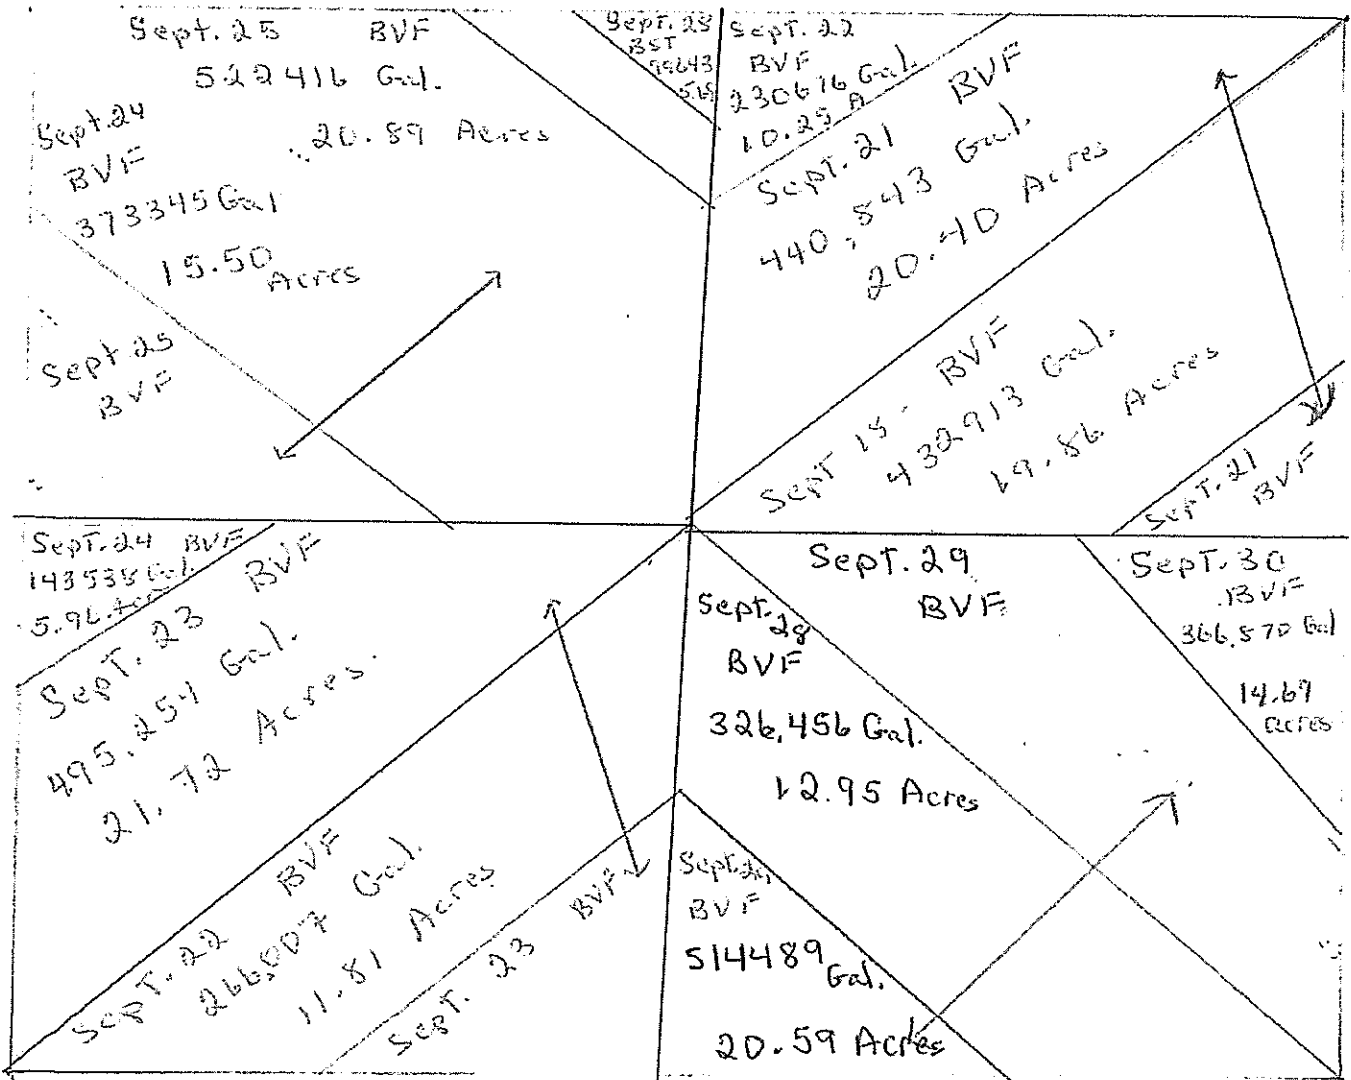 Sept. 25 BVF
522416 Gal.
20.89 Acres
Sept. 24
BVF
373345 Gal
15.50
Acres
Sept. 25
BVF
BST
Sept. 22
BVF
230676 Gal.
10.25 A
Sept. 21 BVF
440,843 Gal.
20.40 Acres
Sept 18 - BVF
432913 Gal.
19.86 Acres
Sept. 21
BVF
Sept. 24 BVF
143538 Gal.
5.96 Acres
Sept. 23 BVF
495,254 Gal.
21.72 Acres.
Sept. 22 BVF
266,007 Gal.
11.81 Acres
Sept. 23 BVF
Sept. 29
BVF
Sept. 28
BVF
326,456 Gal.
12.95 Acres
Sept. 30
BVF
366,570 Gal
14.69
acres
BVF
514489
Gal.
20.59 Acres